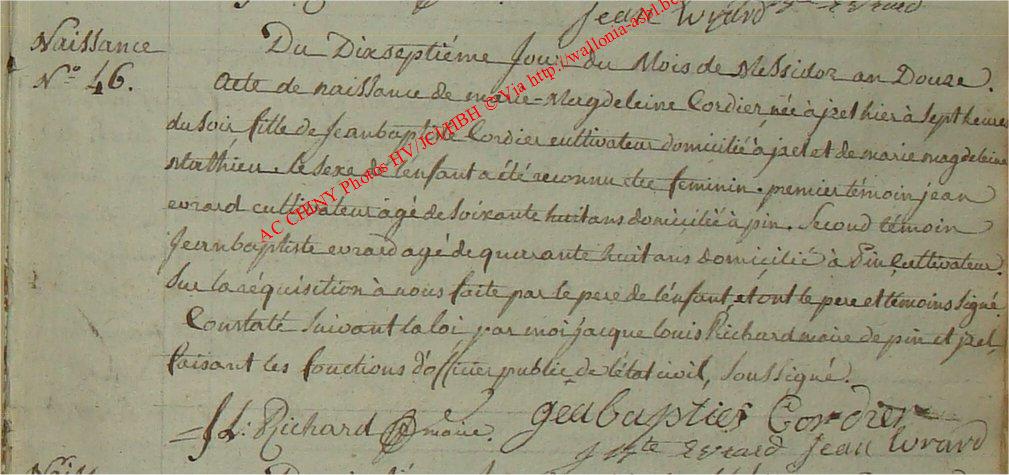 Jean Wrard
Naissance
N.º 46.
Du Dixseptiéme Jour du Mois de Messidor an Douze.
Acte de naissance de marie-Magdeleine Cordier née à izel hier à sept heures
du soir fille de Jeanbaptiste Cordier cultivateur domicilié à izel et de marie magdeleine
Mathieu. le sexe de l'enfant a été reconnu être feminin. premier témoin jean
evrard cultivateur agé de soixante huit ans domicilié à pin. Second témoin
Jeanbaptiste evrard agé de quarante huit ans domicilié à Pin Cultivateur.
Sur la réquisition à nous faite par le pere de l'enfant, et ont le pere et témoins signé.
Constaté suivant la loi par moi jacque louis Richard maire de pin et izel,
faisant les fonctions d'officier public de l'état civil, soussigné.
Richard maire.
Cordier
evrard Jean Wrard
AC CHINY Photos HV/JCMHBH © Via http://wallonia-asbl.be